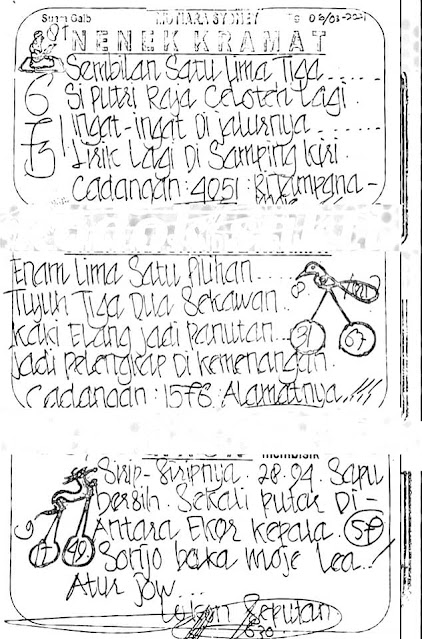 MUTIARA SYDNEY
NENEK KRAMAT
Sembilan Satu Lima Tiga.....
Si Putri Raja Celoteh Lagi.
Ingat-ingat Di jalurnya......
Lirik Lagi Di Samping Kiri.
6
Cadangan: 4051:
Enam Lima Satu Pilihan....
Tujuh Tiga Dua Sekawan..
Kaki Elang jadi Panutan...
31 67
Jadi Pelengkap Di Kemenangan.
Cadangan: 1576: Alamatnya.
Sirip-Siripnya. 28.94. Sapu
Bersih. Sekali putar Di-
Antara Ekor Kepala. 59
9
17
Sonjo baka moje Lea..!
Atur jow...